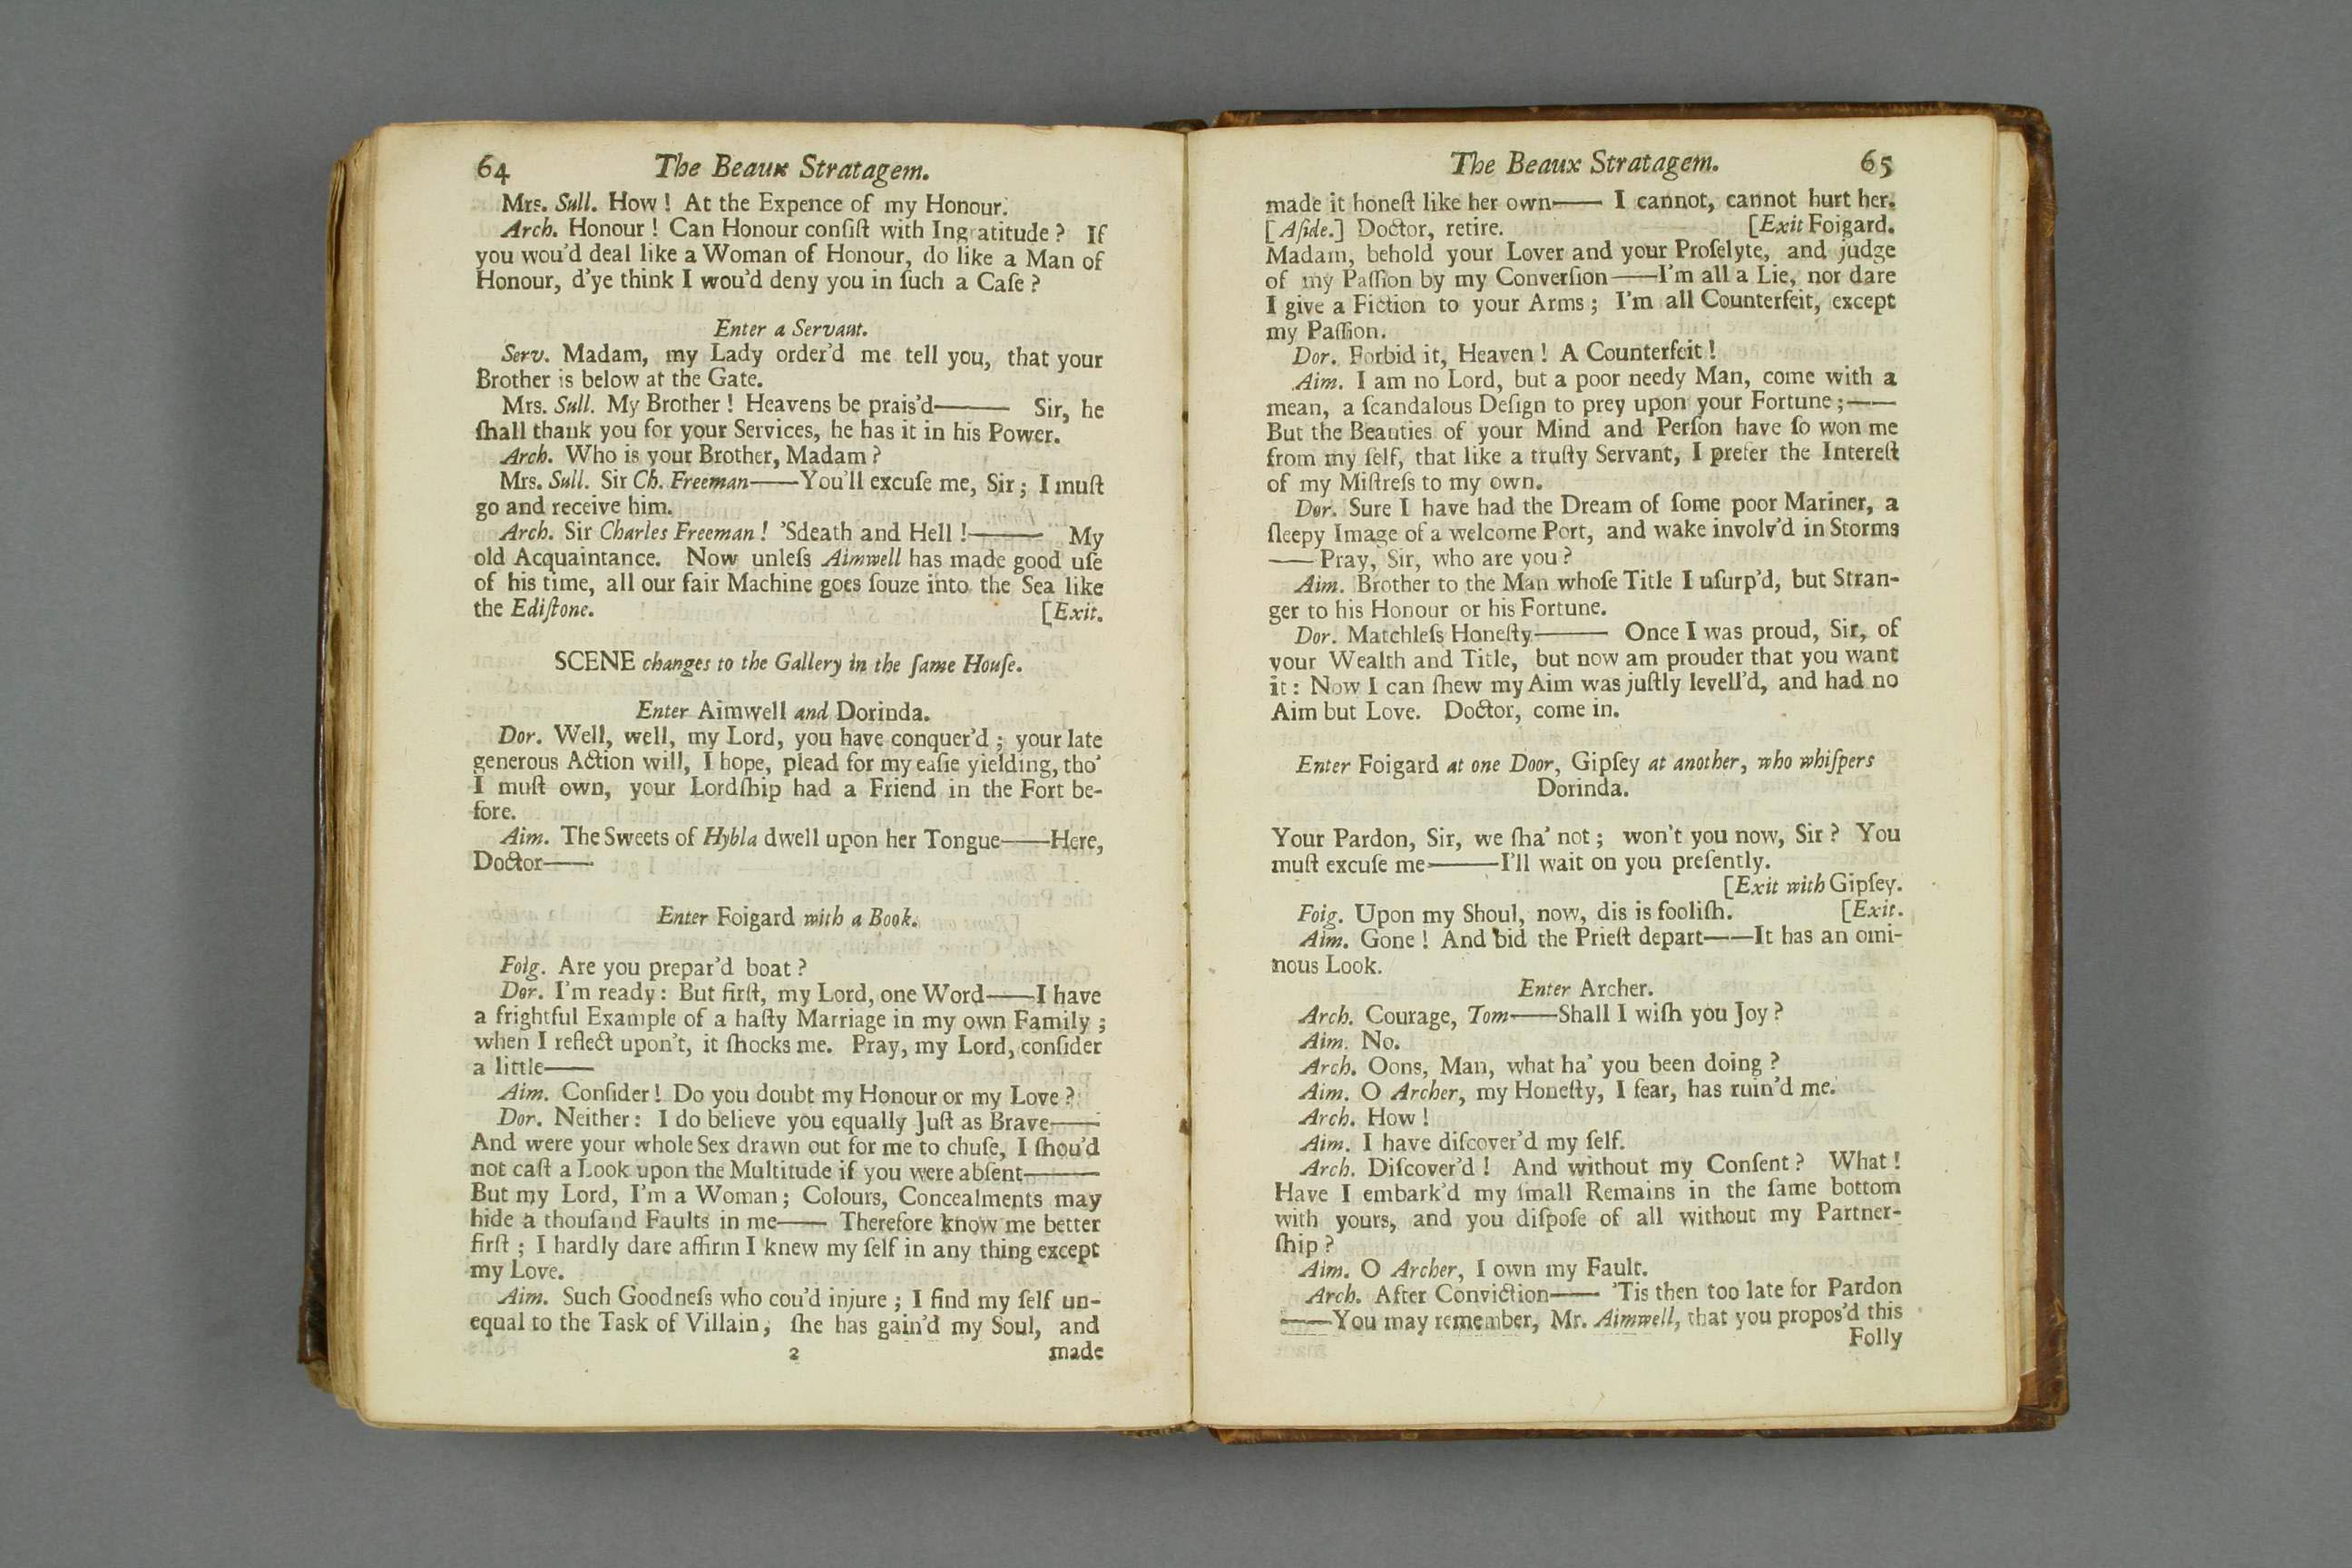 64 The Beaux Stratagem.
Mrs. Sull. How ! At the Expence of my Honour.
Arch. Honour ! Can Honour conſiſt with Ingratitude ? If
you wou'd deal like a Woman of Honour, do like a Man of
Honour, d'ye think I wou'd deny you in ſuch a Caſe ?
Enter a Servant.
Serv. Madam, my Lady order'd me tell you, that your
Brother is below at the Gate.
Mrs. Sull. My Brother ! Heavens be prais'd—— Sir, he
ſhall thank you for your Services, he has it in his Power.
Arch. Who is your Brother, Madam ?
Mrs. Sull. Sir Ch. Freeman——You'll excuſe me, Sir ; I muſt
go and receive him.
Arch. Sir Charles Freeman ! 'Sdeath and Hell !—— My
old Acquaintance. Now unleſs Aimwell has made good uſe
of his time, all our fair Machine goes ſouze into the Sea like
the Ediſtone. [Exit.
SCENE changes to the Gallery in the ſame Houſe.
Enter Aimwell and Dorinda.
Dor. Well, well, my Lord, you have conquer'd ; your late
generous Action will, I hope, plead for my eaſie yielding, tho'
I muſt own, your Lordſhip had a Friend in the Fort be-
fore.
Aim. The Sweets of Hybla dwell upon her Tongue——Here,
Doctor——
Enter Foigard with a Book.
Foig. Are you prepar'd boat ?
Dor. I'm ready : But firſt, my Lord, one Word——I have
a frightful Example of a haſty Marriage in my own Family ;
when I reflect upon't, it ſhocks me. Pray, my Lord, conſider
a little——
Aim. Conſider ! Do you doubt my Honour or my Love ?
Dor. Neither : I do believe you equally Juſt as Brave——
And were your whole Sex drawn out for me to chuſe, I ſhou'd
not caſt a Look upon the Multitude if you were abſent——
But my Lord, I'm a Woman ; Colours, Concealments may
hide a thouſand Faults in me—— Therefore know me better
firſt ; I hardly dare affirm I knew my ſelf in any thing except
my Love.
Aim. Such Goodneſs who cou'd injure ; I find my ſelf un-
equal to the Task of Villain, ſhe has gain'd my Soul, and
2 made
The Beaux Stratagem. 65
made it honeſt like her own—— I cannot, cannot hurt her.
[Aſide.] Doctor, retire. [Exit Foigard.
Madam, behold your Lover and your Proſelyte, and judge
of my Paſſion by my Converſion——I'm all a Lie, nor dare
I give a Fiction to your Arms ; I'm all Counterfeit, except
my Paſſion.
Dor. Forbid it, Heaven ! A Counterfeit !
Aim. I am no Lord, but a poor needy Man, come with a
mean, a ſcandalous Deſign to prey upon your Fortune ;——
But the Beauties of your Mind and Perſon have ſo won me
from my ſelf, that like a truſty Servant, I prefer the Intereſt
of my Miſtreſs to my own.
Dor. Sure I have had the Dream of ſome poor Mariner, a
ſleepy Image of a welcome Port, and wake involv'd in Storms
——Pray, Sir, who are you ?
Aim. Brother to the Man whoſe Title I uſurp'd, but Stran-
ger to his Honour or his Fortune.
Dor. Matchleſs Honeſty—— Once I was proud, Sir, of
your Wealth and Title, but now am prouder that you want
it : Now I can ſhew my Aim was juſtly levell'd, and had no
Aim but Love. Doctor, come in.
Enter Foigard at one Door, Gipſey at another, who whiſpers
Dorinda.
Your Pardon, Sir, we ſha' not ; won't you now, Sir ? You
muſt excuſe me——I'll wait on you preſently.
[Exit with Gipſey.
Foig. Upon my Shoul, now, dis is fooliſh. [Exit.
Aim. Gone ! And bid the Prieſt depart——It has an omi-
nous Look.
Enter Archer.
Arch. Courage, Tom——Shall I wiſh you Joy ?
Aim. No.
Arch. Oons, Man, what ha' you been doing ?
Aim. O Archer, my Honeſty, I fear, has ruin'd me.
Arch. How !
Aim. I have diſcover'd my ſelf.
Arch. Diſcover'd ! And without my Conſent ? What !
Have I embark'd my ſmall Remains in the ſame bottom
with yours, and you diſpoſe of all without my Partner-
ſhip ?
Aim. O Archer, I own my Fault.
Arch. After Conviction—— 'Tis then too late for Pardon
——You may remember, Mr. Aimwell, that you propos'd this
Folly